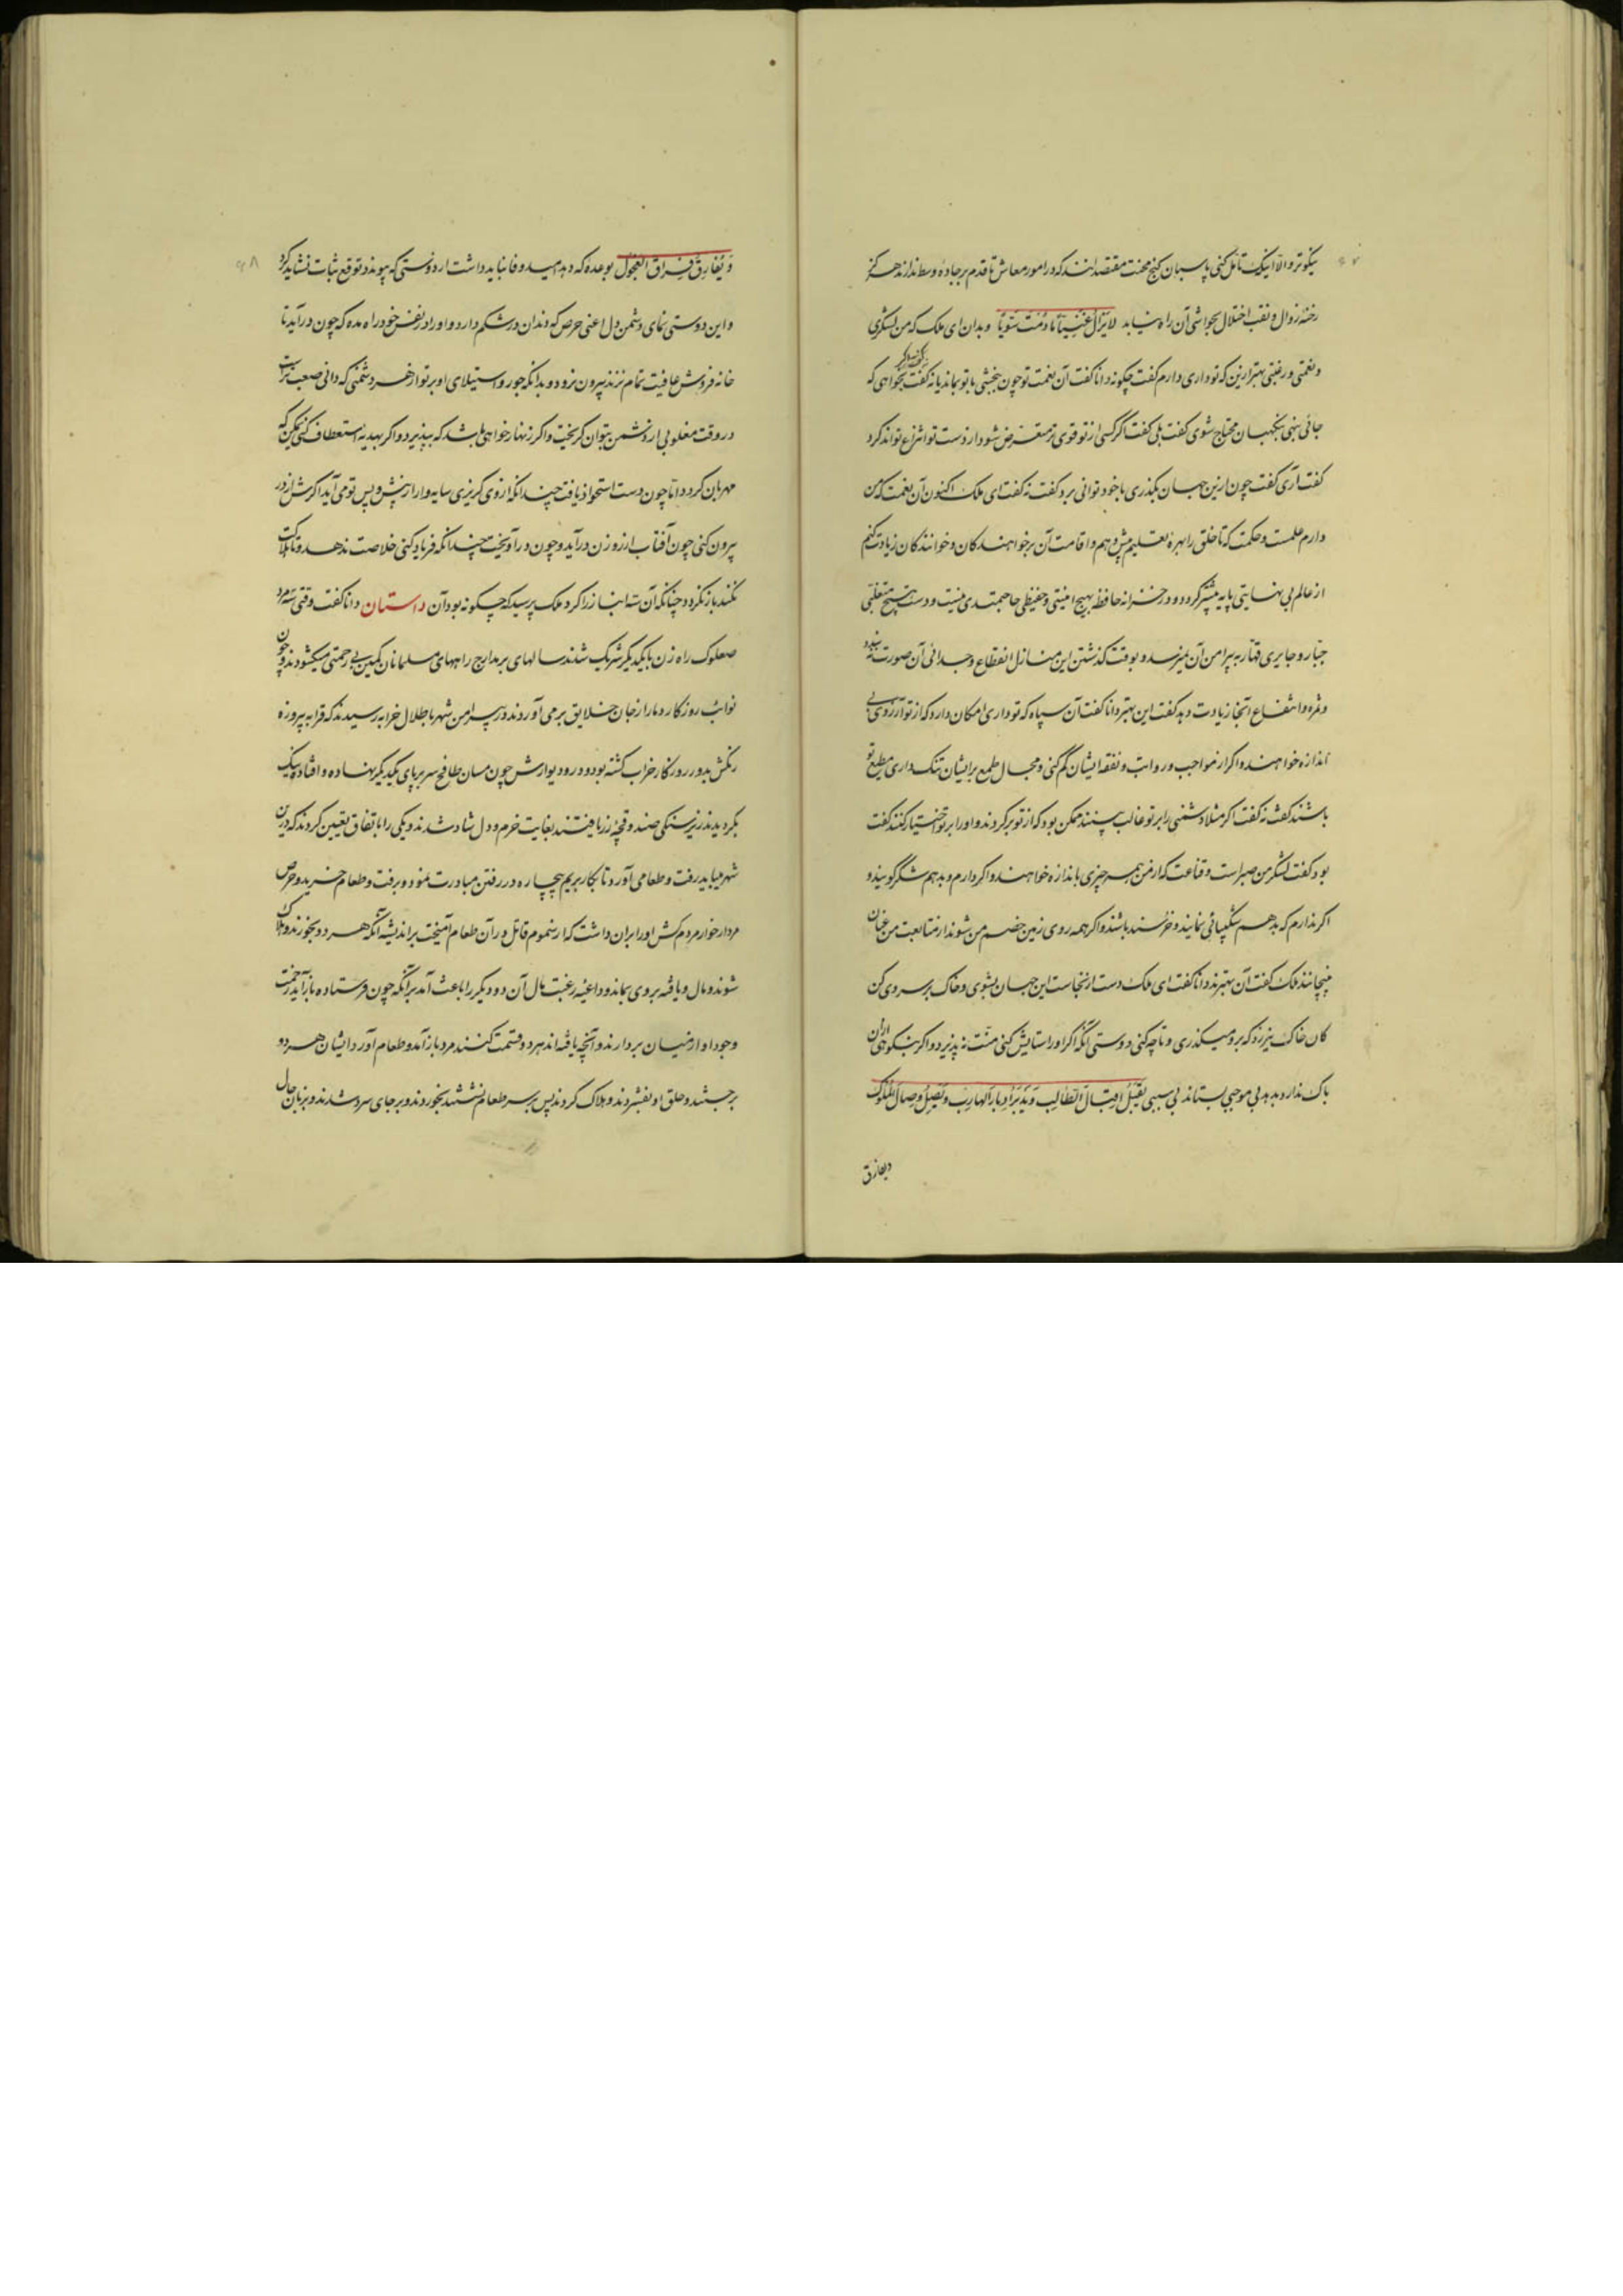 نیکوتر و الا اینک تأمل کنی پاسبان گنج محنت مقتصدانند که در امور معاش تا قدم بر جاده وسط ندارند هرگز
رخنه زوال و نقب اختلال بحواشی آن راه نیابد لایزال غنیتاما دمت سویا و بدان ای ملک که من لشکری
و نعمتی و رغبتی بهتر ازین که تو داری دارم گفت چگونه دانا گفت آن نعمت تو چون ببخشی با تو بماند یا نه گفت نه گفت بخواهی که
جائی بنهی بنگهبان محتاج شوی گفت بلی گفت اگر کسی از تو قوی تر متعرض شود از دست تو انتزاع تواند کرد
گفت آری گفت چون ازین جهان بگذری با خود توانی برد گفت نه گفت ای ملک اکنون آن نعمت که من
دارم علمست و حکمت که تا خلق را بهره تعلیم بیش دهم و اقامت آن بر خواهندگان و خوانندگان زیادت کنم
از عالم بی نهایتی پایه بیشتر گردد و در خزانه حافظه بهیچ امینی و حفیظی حاجتمندی نیست و دست هیچ متغلبی
جبار و جایری قهار به پیرامن آن نیرسد و بوقت گذشتن این منازل انقطاع و جدائی آن صورت نبندد
و ثمره و انتفاع آنجا زیادت دهد گفت این بهتر دانا گفت آن سپاه که تو داری امکان دارد که از تو آرزوی بی
اندازه خواهند و اگر از مواجب و رواتب و نفقه ایشان کم کنی و مجال طمع بر ایشان تنگ داری مطیع تو
باشند گفت نه گفت اگر مثلا دشمنی را بر تو غالب بینند ممکن بود که از تو برگردند و او را بر تو اختیار کنند گفت
بود گفت لشکر من صبر است و قناعت که از من همه چیزی باندازه خواهند و اگر دارم و بدهم شکر گویند و
اگر ندارم که بدهم شکیبائی نمایند و خرسند باشند و اگر همه روی زمین خصم من شوند از متابعت من عنان
نپیچانند ملک گفت آن بهترند دانا گفت ای ملک دست از نجاست این جهان بشوی و خاک بر سر وی کن
کان خاک نیرزد که برو میگذری و تا چه کنی دوستی آنکه اگر او را ستایش کنی منت نپذیرد و اگر بنکوهی ازان
باک ندارد بدهد بی موجبی بستاند بی سببی یقبل اقبال الطالب و یدبر ادبار الهارب و یصل وصال الملوک
ویفارق
و یفارق فراق العجول بوعده که دهد امید وفا نباید داشت از دوستی که پیوندد توقع ثبات نشاید کرد
و این دوستی نمای دشمن دل اعنی حرص که دندان در شکم دارد و او را در نفس خود راه مده که چون درآید تا
خانه فروش عافیت تمام نزند بیرون نرود و بدانکه جور و استیلای او بر تو از هر دشمنی که دانی صعب ترست
در وقت مغلوبی از دشمن بتوان گریخت و اگر زنهار خواهی باشد که بپذیرد و اگر بهدیه استعطاف کنی ممکن که
مهربان گردد اما چون دست استحواذ یافت چندانکه از وی گریزی سایه وار از پیش و پس تو می آید اگرش از در
بیرون کنی چون آفتاب از روزن درآید و چون درآویخت چندانکه فریاد کنی خلاصت ندهد و تا هلاکت
نکند بازنگردد چنانکه آن سه انباز را کرد ملک پرسید که چگونه بود آن داستان دانا گفت وقتی سه مرد
صعلوک راه زن با یکدیگر شریک شدند سالهای بر مدارج راههای مسلمانان کمین بی رحمتی میگشودند و چون
نوائب روزگار دمار از جان خلایق بر می آوردند در پیرامن شهر باطلال خرابه رسیدند که قرابه پیروزه
رنگش بدور روزگار خراب گشته بود و در و دیوارش چون مستان طافح سر بر پای یکدیگر نهاده و افتاده نیک
بگردیدند زیر سنگی صندوقچه زر یافتند بغایت خرم و دل شاد شدند و یکی را باتفاق تعیین کردند که درین
شهر میباید رفت و طعامی آورد تا بکار بریم بیچاره در رفتن مبادرت نمود و برفت و طعام خرید و حرص
مردار خوار مردم کش او را بران داشت که از سموم قاتل در آن طعام آمیخت بر اندیشه آنکه هر دو بخورند و هلاک
شوند و مال و یافته بر وی بماند و داعیه رغبت مال آن دو دیگر را باعث آمد بر آنکه چون فرستاده بازآید زحمت
وجود او از میان بردارند و آنچه یافته اند هر دو قسمت کنند مرد بازآمد و طعام آورد ایشان هر دو
برجستند و حلق او بفشردند و هلاک کردند پس بر سر طعام نشستند بخوردند و بر جای سرد شدند و بزبان حال
۴۸